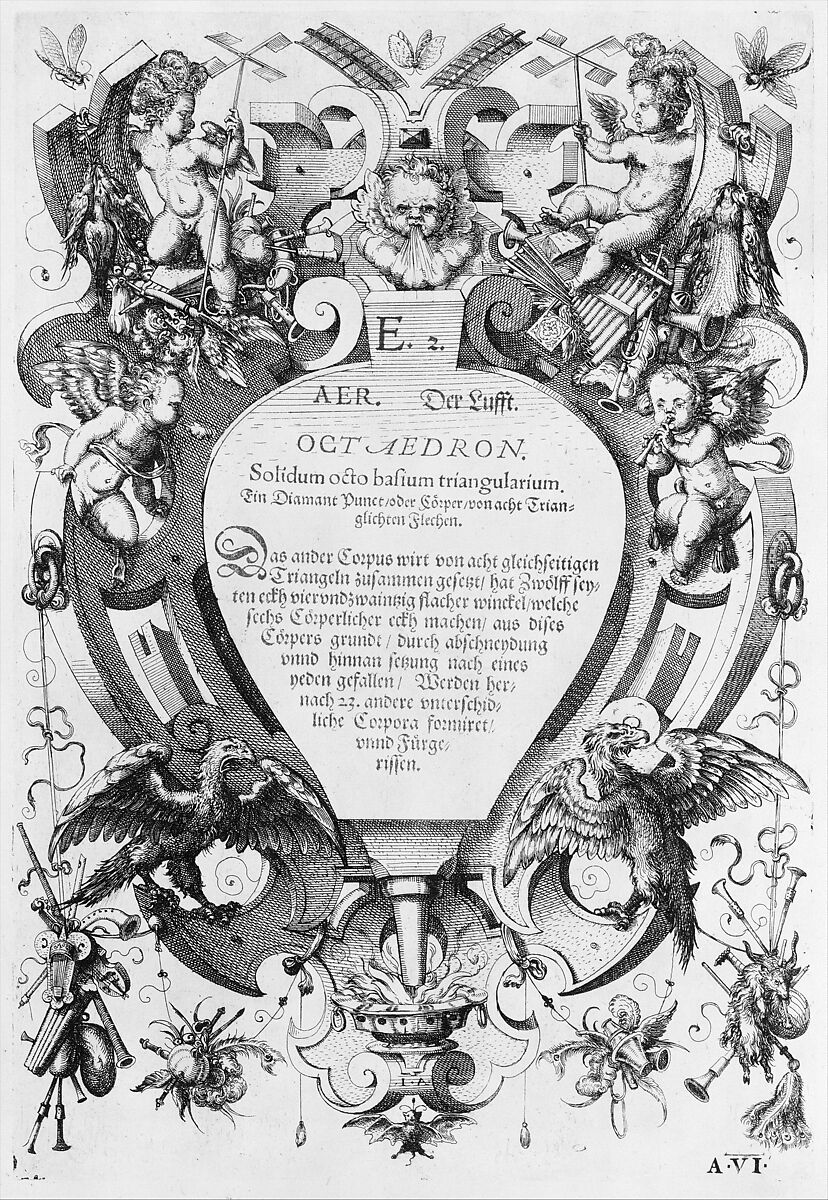 E. 2.
AER. Der Lufft.
OCTAEDRON.
Solidum octo basium triangularium.
Ein Diamant Punct/oder Cörper/von acht Trian-
glichten Flechen.
Das ander Corpus wirt von acht gleichseitigen
Triangeln zusammen gesetzt/ hat Zwölff sey-
ten eckh viervndzwaintzig flacher winckel/welche
sechs Cörperlicher eckh machen/ aus dises
Cörpers grundt/ durch abschneydung
vnnd hinnan setzung nach eines
yeden gefallen/ Werden her-
nach 23. andere vnterschid-
liche Corpora formiret/
vnnd Fürge-
rissen.
I A
A·VI·